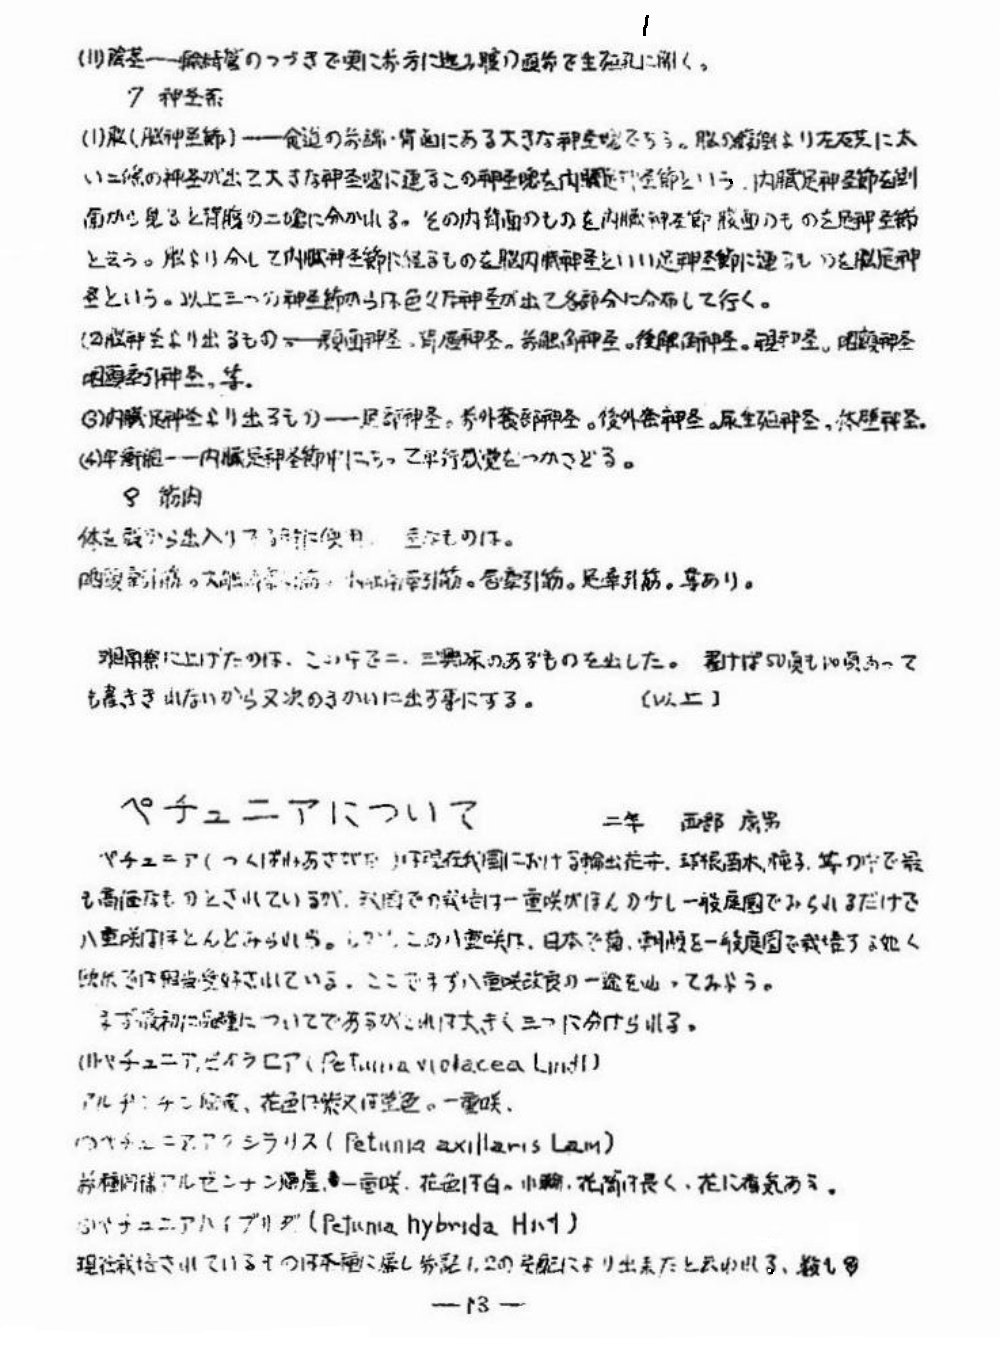 (11)陰茎──輸精管のつづきで更に前方に進み腹の面前で生殖孔に開く。
7 神圣系
(1)脳(脳神圣節)──食道の前端・背面にある大きな神圣塊である。脳の腹側より左右共に太
い二條の神圣が出て大きな神圣塊に連るこの神圣塊を内臓足神圣節という。内臓足神圣節を側
面から見ると背腹の二塊に分かれる。その内背面のものを内臓神圣節腹面のものを足神圣節
と云う。脳より分して内臓神圣節に経るものを脳内臓神圣といい足神圣節に連るものを脳足神
圣という。以上三つの神圣節からは色々な神圣が出て各部分に分布して行く。
(2)脳神圣より出るもの──顔面神圣、背唇神圣。前触角神圣。後触角神圣。視神圣。咽頭神圣
咽頭牽引神圣。等。
(3)内臓足神圣より出るもの──足部神圣。前外套部神圣。後外套神圣。尿生殖神圣。体壁神圣。
(4)平衡胞──内臓足神圣節中にあって平行感覚をつかさどる。
8 筋肉
体を殻から出入りする時に使用。主なものは。
咽頭牽引筋。大触角牽引筋。小触角牽引筋。唇牽引筋。足牽引筋。等あり。
湘南祭に上げたのは、この中で二、三興味のあるものを出した。書けば50頁も100頁あって
も書ききれないから又次のきかいに出す事にする。 〔以上〕
ペチュニアについて 二年 西部 康男
ペチュニア(つくばねあさがお)は現在我国における輸出花卉、球根苗木、種子、等の中で最
も高価なものとされているが、我国での栽培は一重咲がほんの少し一般庭園でみられるだけで
八重咲はほとんどみられぬ。しかしこの八重咲は、日本で菊、朝顔を一般庭園で栽培する如く
欧米では相当愛好されている。ここでまず八重咲改良の一途を辿ってみよう。
まず最初に品種についてであるがこれは大きく三つに分けられる。
(1)ペチュニアビオラセア(Petunia violacea Lindl)
アルゼンチン原産、花色は紫又は堇色。一重咲、
(2)ペチュニアアクシラリス(Petunia axillaris Lam)
前種同様アルゼンチン原産、一重咲、花色は白。小輪、花筒は長く、花に香気ある。
(3)ペチュニアハイブリダ(Petunia hybrida Hort)
現在栽培されているものは本種に属し前記1,2の交配により出来たと云われる、最も
─13─